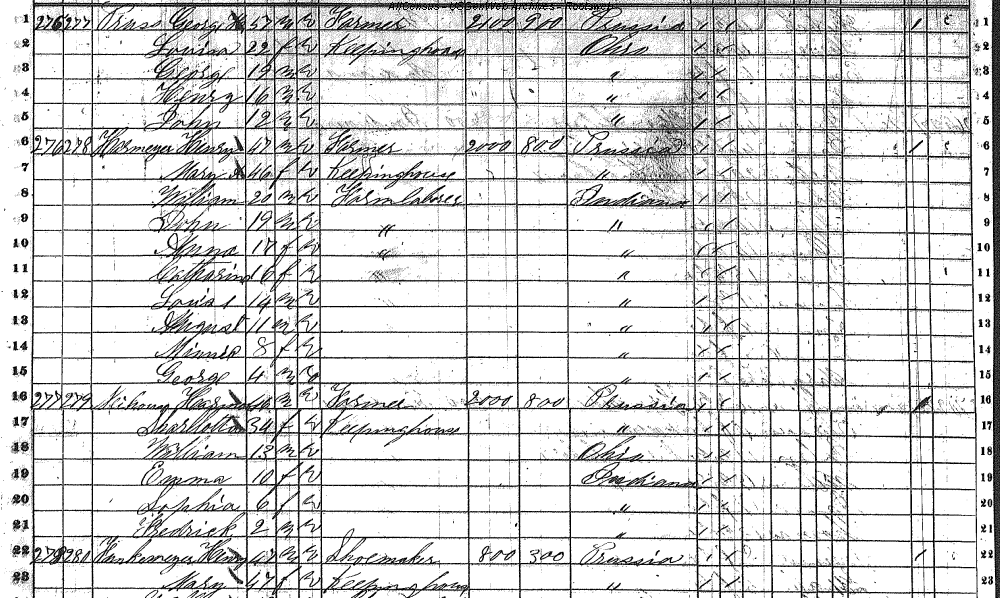 AllCensus - USGenWeb Archives -
1 276 277 George 57 m W Farmer 2100 900 Prussia 1 1 1 1
2 Louisa 22 f W Keepinghouse Ohio 1 1 2
3 George 19 m W " 1 1 3
4 Henry 16 m W " 1 1 4
5 John 12 m W " 1 1 5
6 276 278 Harmeyer Henry 47 m W Farmer 2000 800 Prussia 1 1 1 6
7 Mary 46 f W Keepinghouse " 1 1 7
8 William 20 m W Farm laborer Indiana 1 1 8
9 John 19 m W " " 1 1 9
10 Anna 17 f W " " 1 1 10
11 Catharine 16 f W " " 1 1 11
12 Louis 14 m W " 1 1 12
13 August 11 m W " 1 1 13
14 Minnie 8 f W " 1 1 14
15 George 4 m W " 1 1 15
16 277 279 m W Farmer 2000 800 Prussia 1 1 1 16
17 34 f W Keepinghouse " 1 1 17
18 William 13 m W Ohio 1 1 18
19 Emma 10 f W Indiana 1 1 19
20 Sophia 6 f W " 1 1 20
21 Fredrick 2 m W " 1 1 21
22 278 280 Hankemeyer Henry 47 m W Shoemaker 800 300 Prussia 1 1 1 22
23 Mary 47 f W Keepinghouse " 1 1 23